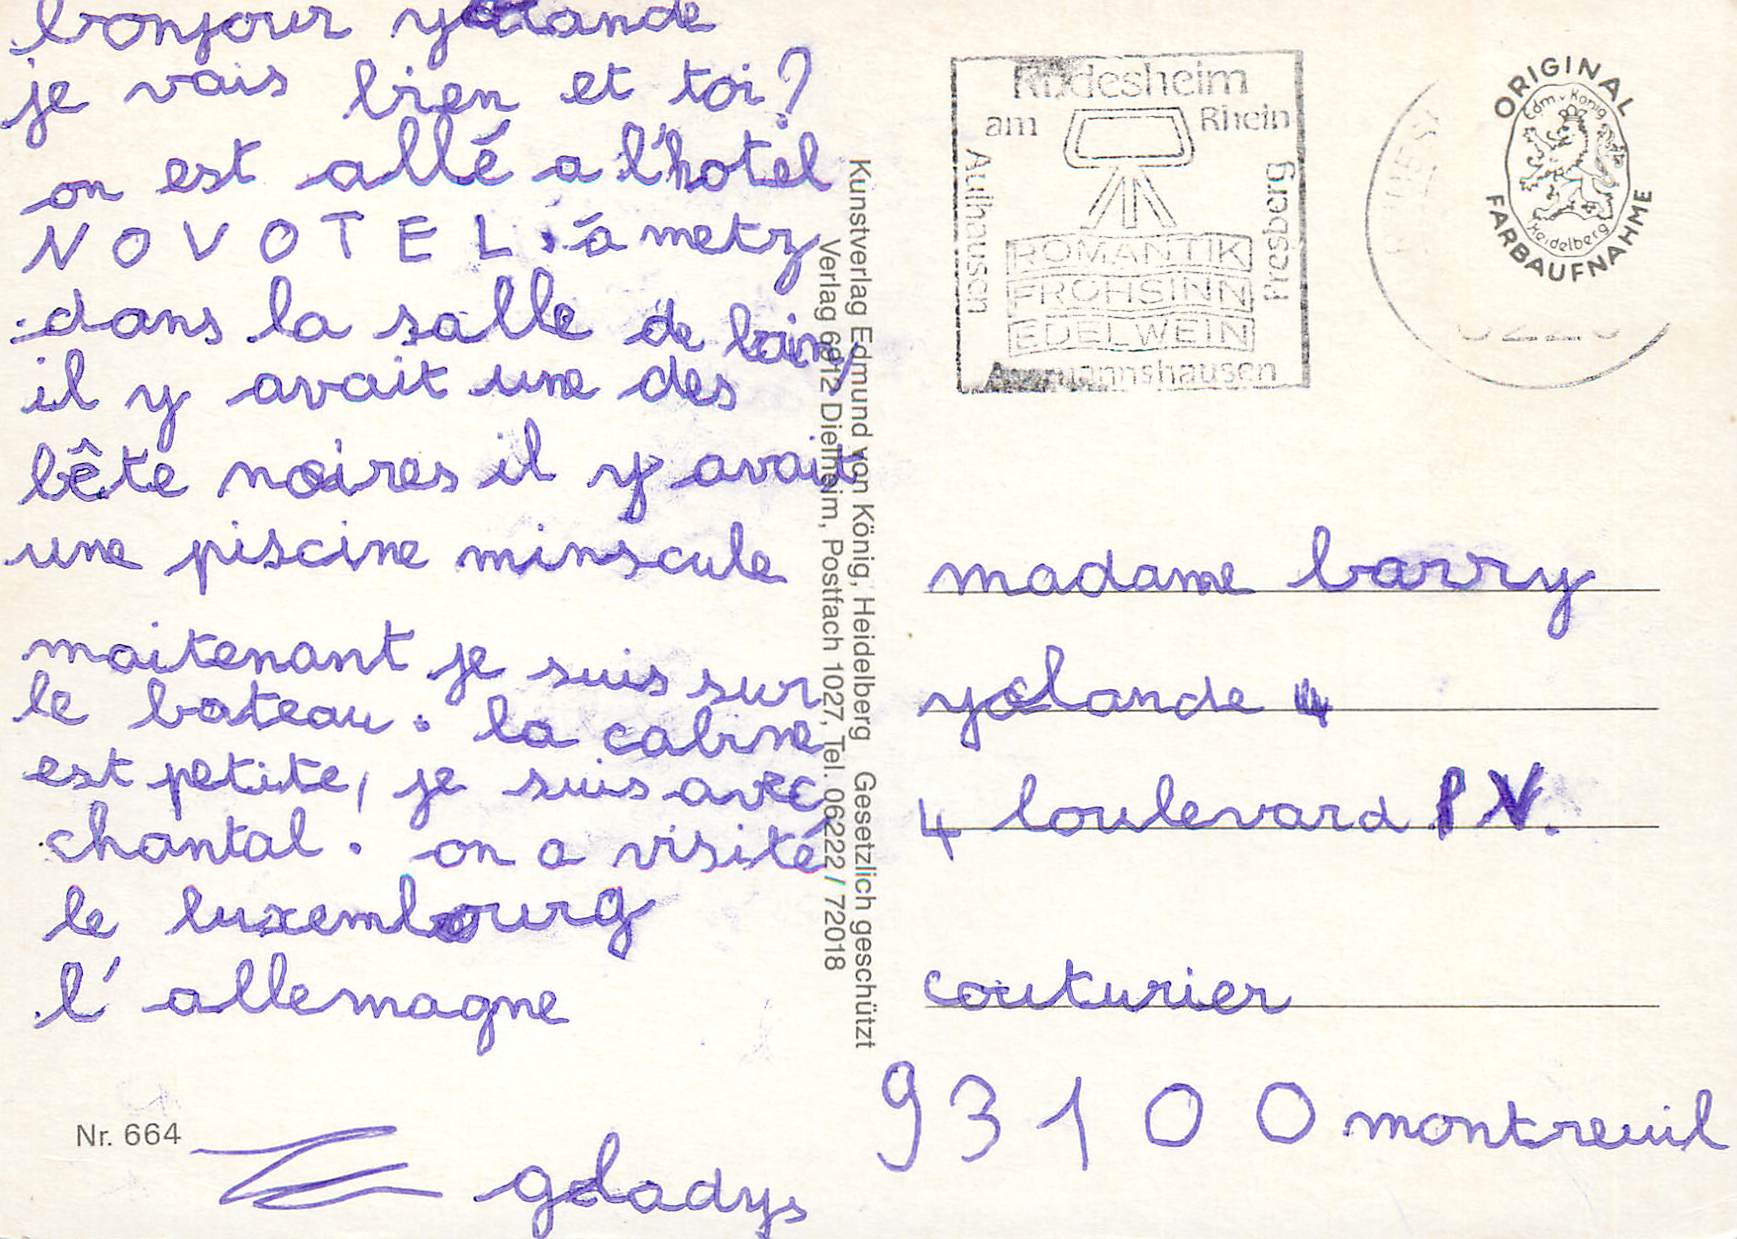 bonjour yolande
je vais bien et toi?
on est allé a l'hotel
NOVOTEL. à metz
dans la salle de bain
il y avait une des
bête noires il y avait
une piscine minscule
maitenant je suis sur
le bateau. la cabine
est petite, je suis avec
chantal. on a visité
le luxembourg
l'allemagne
Nr. 664
gladys
Kunstverlag Edmund von König, Heidelberg Gesetzlich geschützt
Verlag 6912 Dielheim, Postfach 1027, Tel. 06222 / 72018
Rüdesheim
am Rhein
Aulhausen
Presberg
ROMANTIK
FROHSINN
EDELWEIN
Assmannshausen
ORIGINAL
Edm. v. König
Heidelberg
FARBAUFNAHME
madame barry
yolande 4
4 boulevard P V.
couturier
93100 montreuil